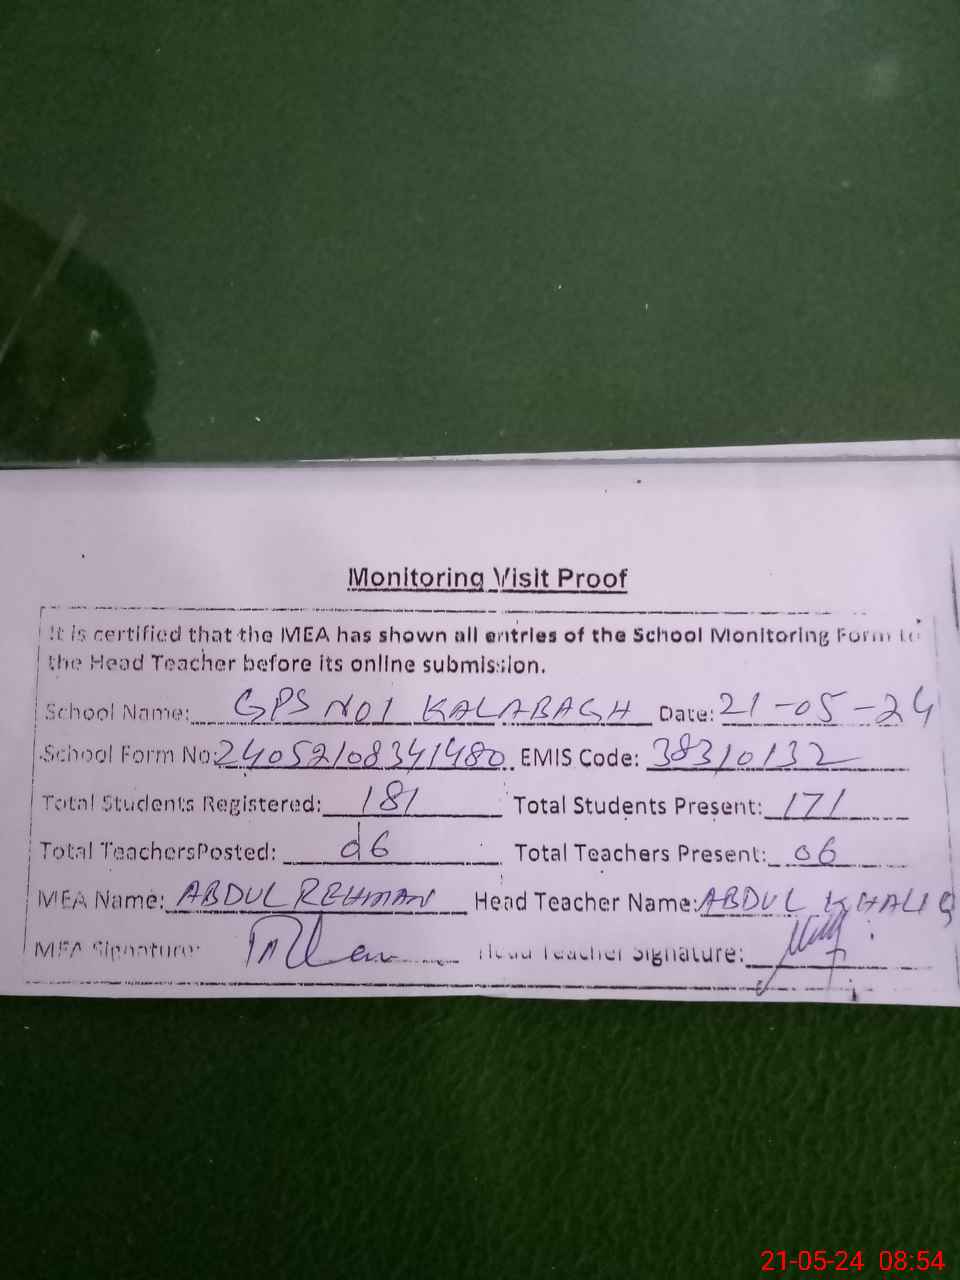 Monitoring Visit Proof
It is certified that the MEA has shown all entries of the School Monitoring Form to
the Head Teacher before its online submission.
School Name: GPS NO1 KALABAGH Date: 21-05-24
School Form No: 24052108341480 EMIS Code: 38310132
Total Students Registered: 181 Total Students Present: 171
Total TeachersPosted: 06 Total Teachers Present: 06
MEA Name: ABDUL REHMAN Head Teacher Name: ABDUL KHALIQ
MEA Signature: Head Teacher Signature:
21-05-24 08:54